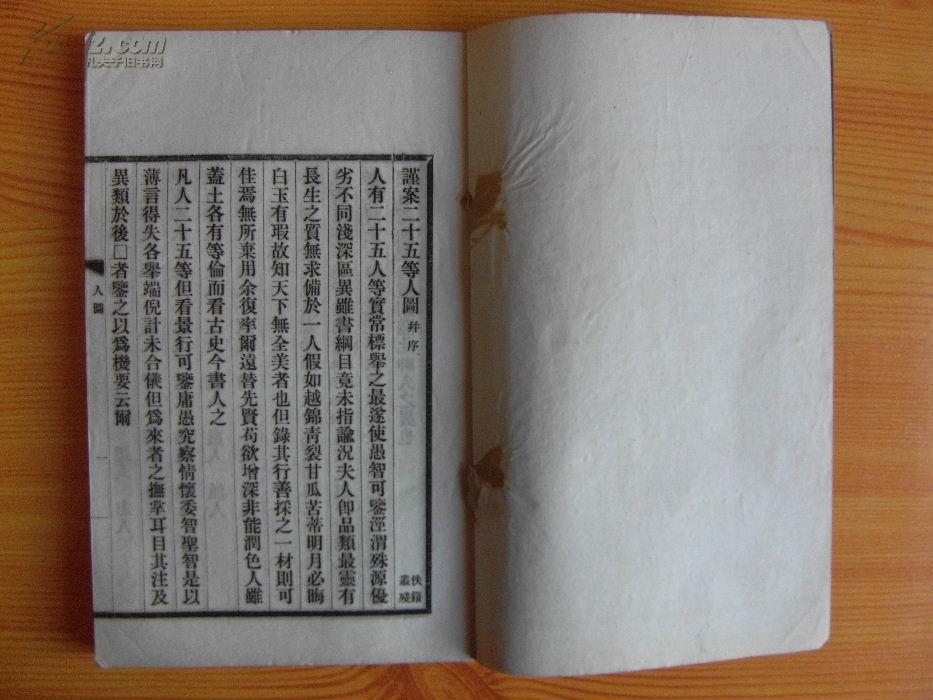 謹案二十五等人圖并序
佚籍
叢殘
人有二十五人等實常標舉之最遂使愚智可鑒涇渭殊源優
劣不同淺深區異雖書綱目竟未指諭況夫人卽品類最靈有
長生之質無求備於一人假如越錦靑裂甘瓜苦蒂明月必晦
白玉有瑕故知天下無全美者也但錄其行善採之一材則可
佳焉無所棄用余復率爾遠替先賢苟欲增深非能潤色人雖
蓋土各有等倫而看古史今書人之
凡人二十五等但看景行可鑒庸愚究察情懷委智聖智是以
薄言得失各舉端倪計未合儀但爲來者之撫掌耳目其注及
異類於後□者鑒之以爲機要云爾
人圖
一
z.com
孔夫子旧书网